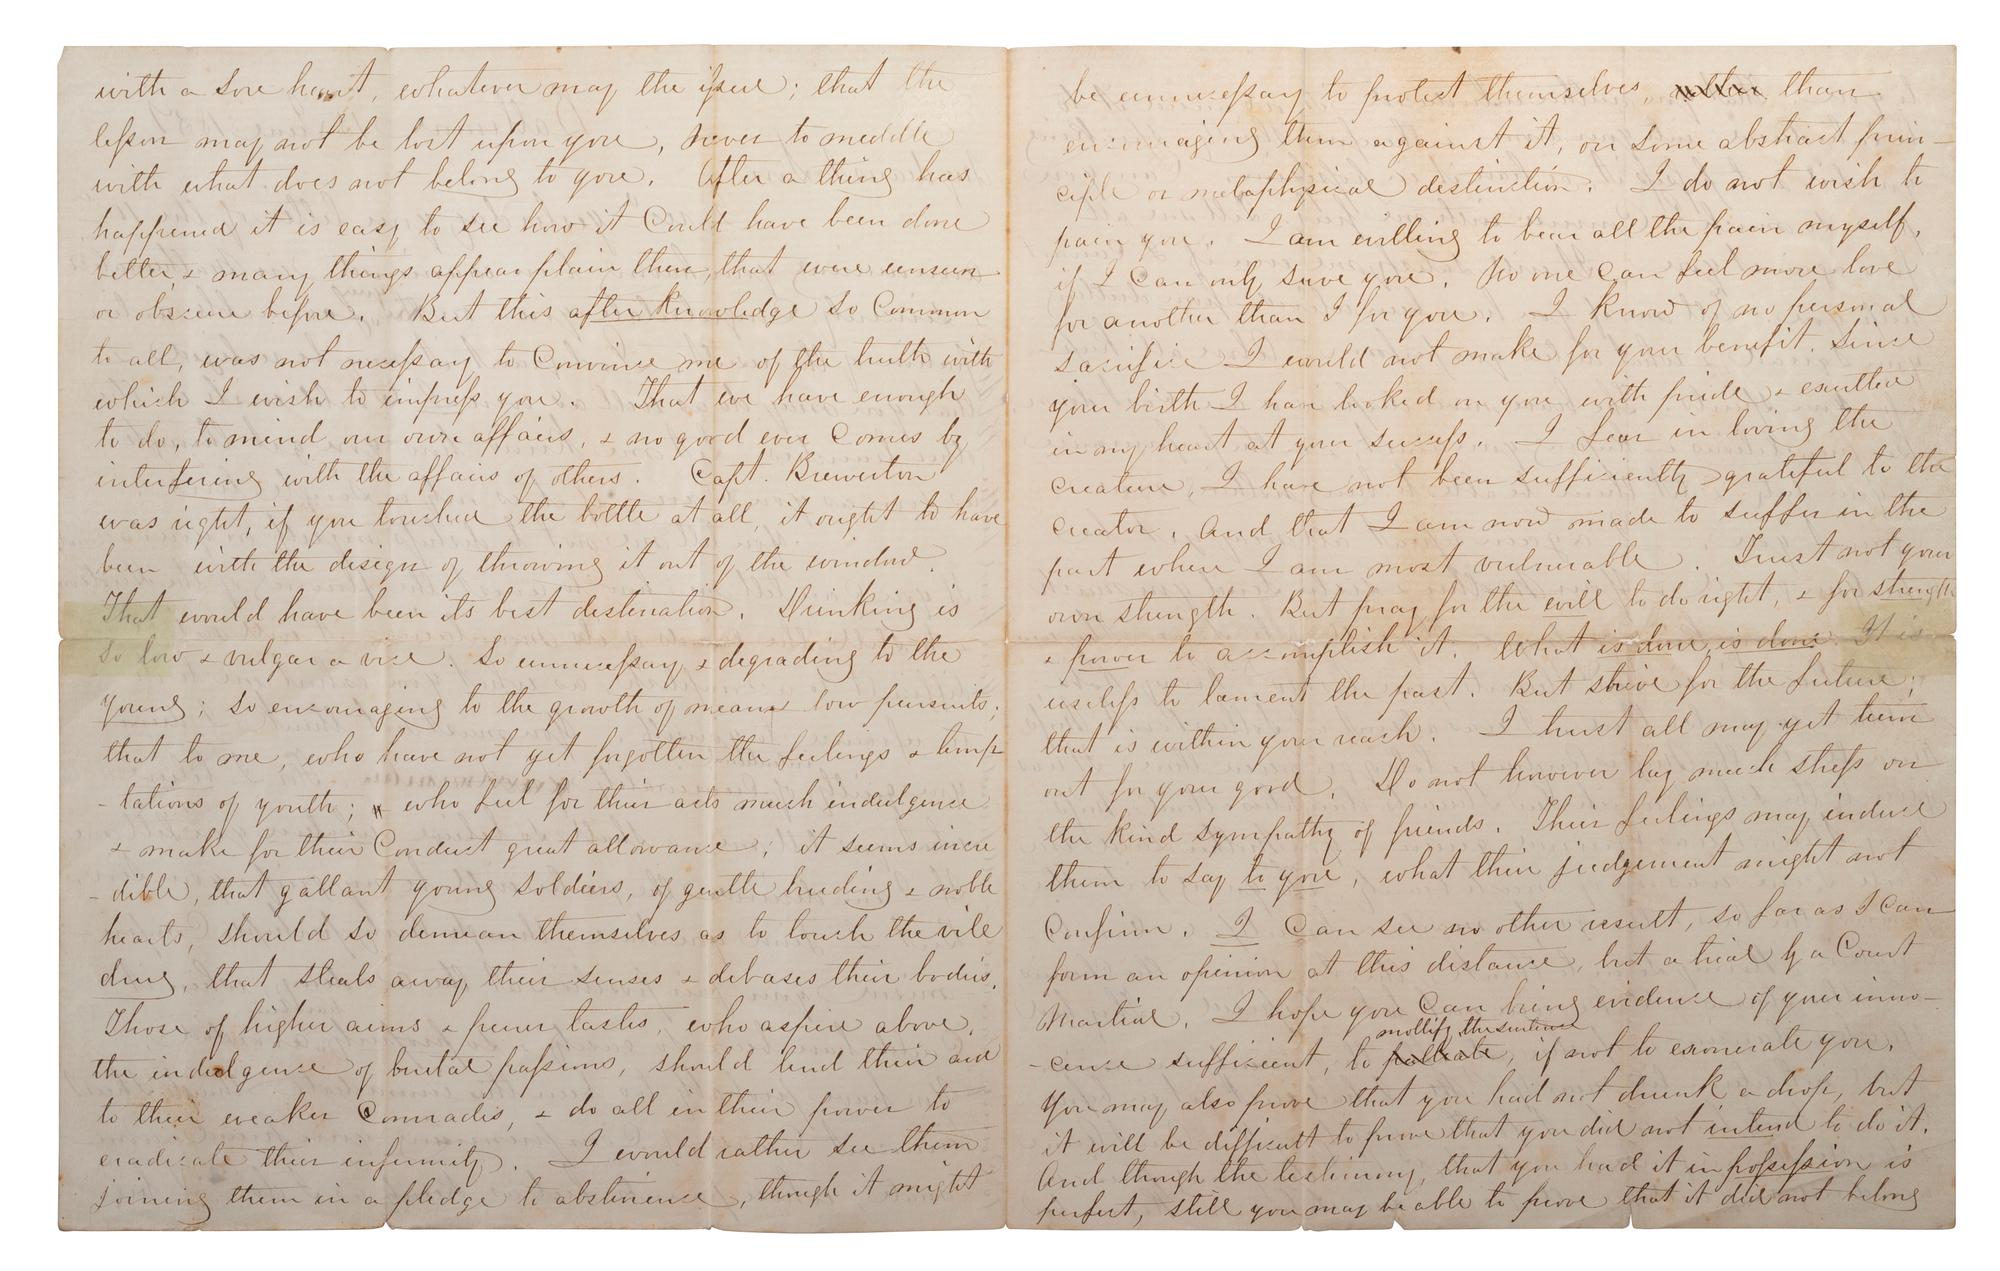 with a sore heart, whatever may the issue; that the
lesson may not be lost upon you, never to meddle
with what does not belong to you. After a thing has
happened it is easy to see how it Could have been done
better, & many things appear plain then, that were unseen
or obscure before. But this after knowledge so Common
to all, was not necessary to Convince me of the truth with
which I wish to impress you. That we have enough
to do, to mind our own affairs, & no good ever Comes by
interfering with the affairs of others. Capt. Brewerton
was right, if you touched the bottle at all, it ought to have
been with the design of throwing it out of the window.
That would have been its best destination. Drinking is
so low & vulgar a vice. So unnecessary & degrading to the
young; so encouraging to the growth of mean low pursuits;
that to me, who have not yet forgotten the feelings & temp
-tations of youth; & who feel for their acts much indulgence
& make for their Conduct great allowance; it seems incre
-dible, that gallant young soldiers, of gentle breeding & noble
hearts, should so demean themselves as to touch the vile
drug, that steals away their senses & debases their bodies.
Those of higher aims & purer tastes, who aspire above,
the indulgence of brutal passions, should lend their aid
to their weaker Comrades, & do all in their power to
eradicate their infirmity. I would rather see them
joining them in a pledge to abstinence, though it might
be unnecessary to protect themselves, rather than
encouraging them against it, on some abstract prin-
ciple or metaphysical distinction. I do not wish to
pain you. I am willing to bear all the pain myself,
if I Can only save you. No one Can feel more love
for another than I for you. I know of no personal
sacrifice I would not make for your benefit. Since
your birth I have looked on you with pride & exulted
in my heart at your success. I fear in loving the
creature, I have not been sufficiently grateful to the
creator. And that I am now made to suffer in the
part where I am most vulnerable. Trust not your
own strength. But pray for the will to do right, & for strength
& power to accomplish it. What is done is done. It is
useless to lament the past. But strive for the future;
that is within your reach. I trust all may yet turn
out for your good. Do not however lay much stress on
the kind sympathy of friends. Their feelings may induce
them to say to you, what their judgement might not
Confirm. I Can see no other result, so far as I Can
form an opinion at this distance, but a trial by a Court
Martial. I hope you Can bring evidence of your inno-
mollify the sentence
-cence sufficient, to palliate, if not to exonerate you.
You may also prove that you had not drunk a drop, but
it will be difficult to prove that you did not intend to do it.
And though the testimony, that you had it in possession is
perfect, still you may be able to prove that it did not belong